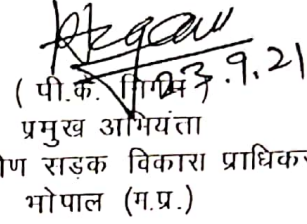 23.9.21
( पी.के. निगम )
प्रमुख अभियंता
ण सड़क विकास प्राधिकर
भोपाल (म.प्र.)